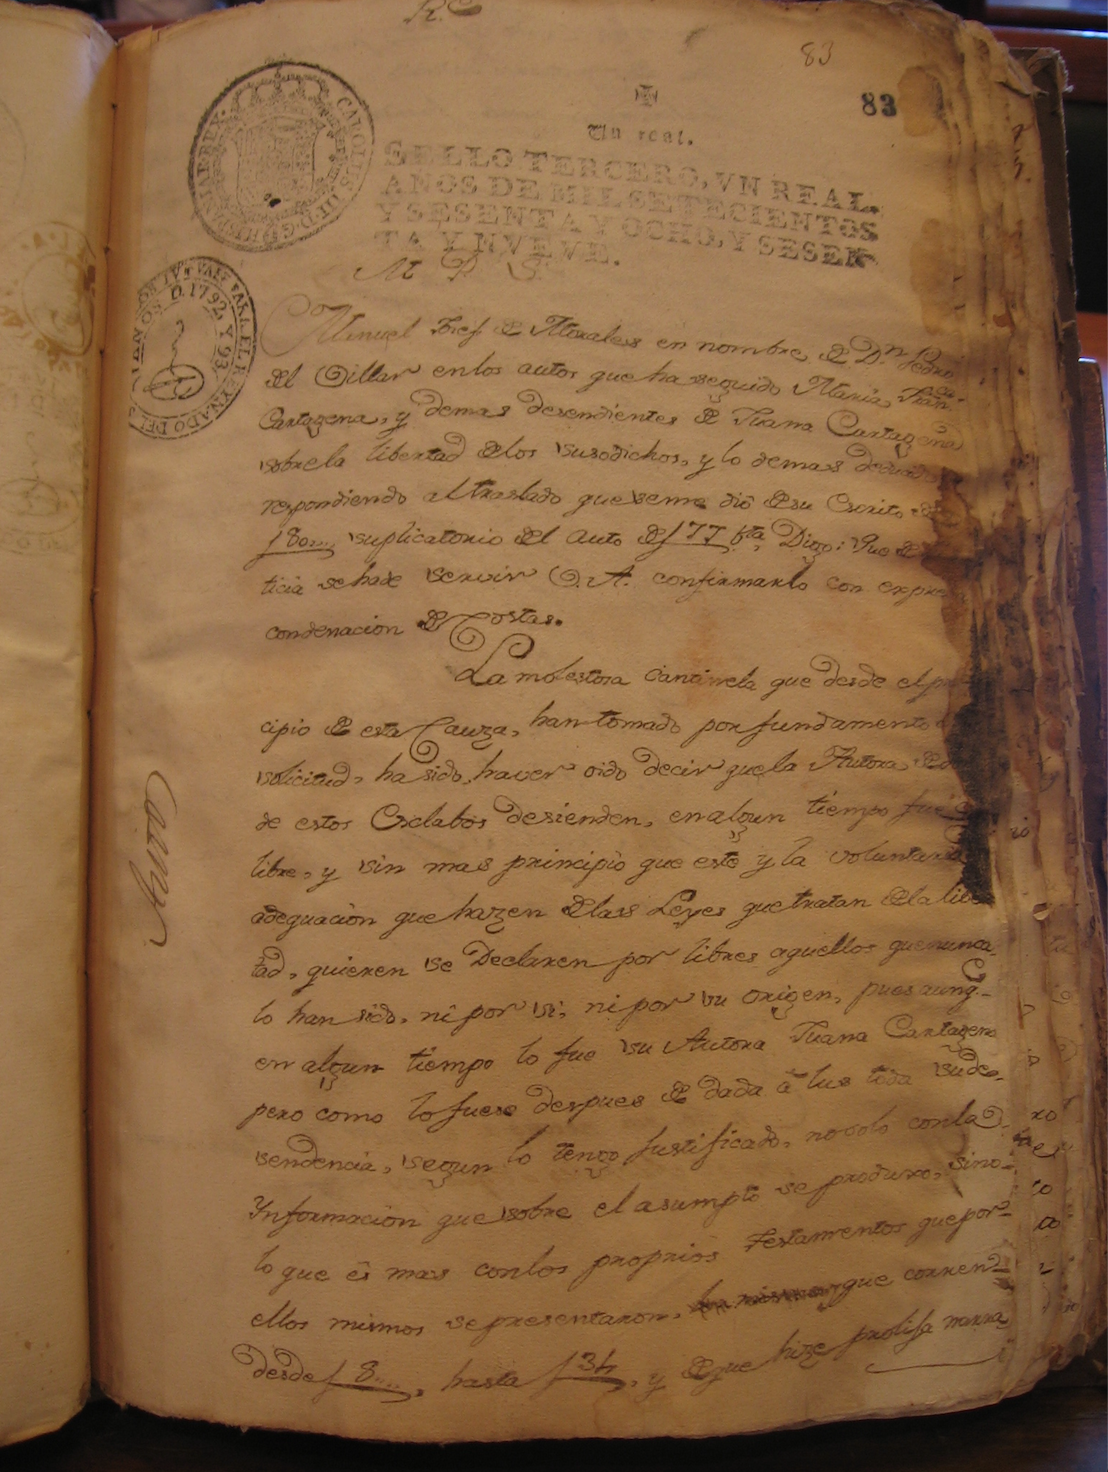 83
83
Un real.
SELLO TERCERO, VN REAL.
AÑOS DE MIL SETECIENTOS
Y SESENTA Y OCHO, Y SESEN
TA Y NVEVE.
M P S
Manuel Josef de Morales en nombre de Dn Pedro
del Villar en los autos que ha seguido Maria Franca
Cartagena, y demas desendientes de Juana Cartagena
sobre la libertad de los susodichos, y lo demas deducido
respondiendo al traslado que seme diò de su Escrito de
f 80..., suplicatorio del auto de f 77 bta Digo: Que de
ticia se hade servir V.A. confirmarlo con expre
condenacion de Costas.
La molestosa cantinela que desde el prin
cipio de esta Cauza, han tomado por fundamento
solicitud, ha sido, haver oido decir que la Autora
de estos Esclabos desienden, en algun tiempo fuè
libre, y sin mas principio que este y la voluntaria
adequacion que hazen de las Leyes que tratan de la liber
tad, quieren se Declaren por libres aquellos que nunca
lo han sido, ni por si, ni por su origen, pues aunq.
en algun tiempo lo fue su Autora Juana Cartagena
pero como lo fuese despues de dada à lus toda su de
sendencia, segun lo tengo justificado, no solo con la
Informacion que sobre el asumpto se produxo, sino
lo que ès mas con los proprios Testamentos que por
ellos mismos se presentaron, que corren
desde f 8..., hasta f 34, y de que hize prolija narra
Auto
CAROLUS III D. G. HISPANIAR REX